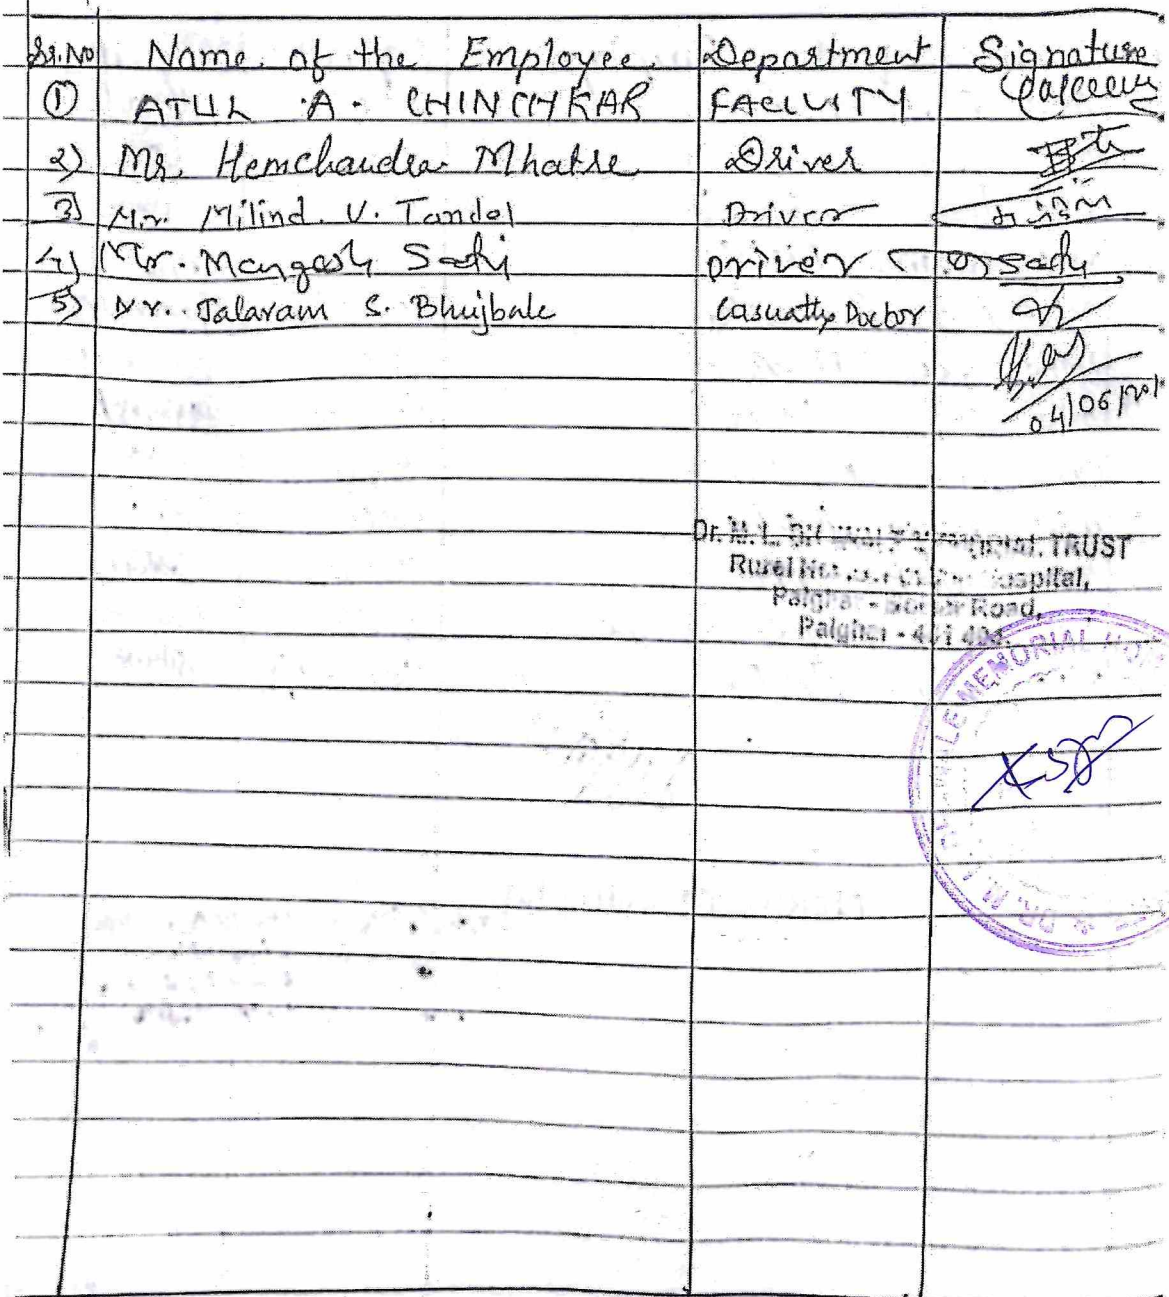 Sr.No Name of the Employee Department Signature
① ATUL A. CHINCHKAR FACULTY
2) Mr. Hemchandra Mhatre Driver
3) Mr. Milind. V. Tandel Driver
4) Mr. Mangash Driver
5) Dr. Jalaram S. Bhujbale Casualty Doctor
04/06/201
Dr. M. L. TRUST
Rural Hospital,
Palghar - Road,
Palghar - 401 404.
MEMORIAL
DR. M. L.